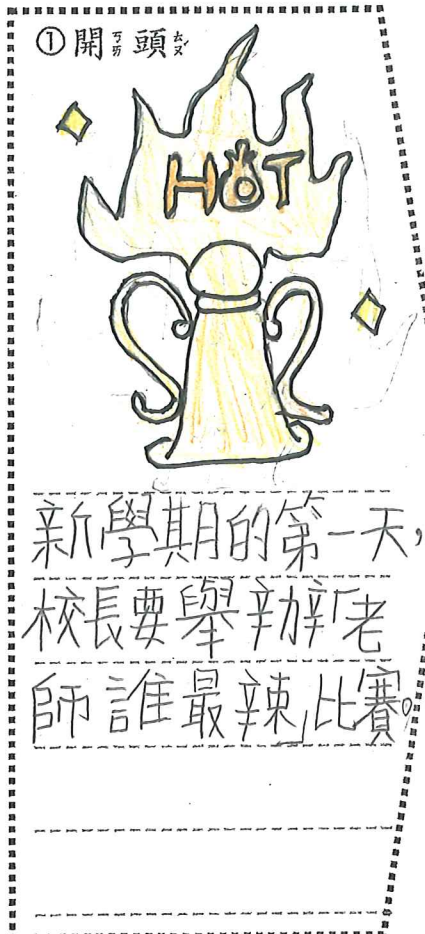 ①開ㄎㄞ頭ㄊㄡˊ
HOT
新學期的第一天,
校長要舉辦「老
師誰最辣」比賽。